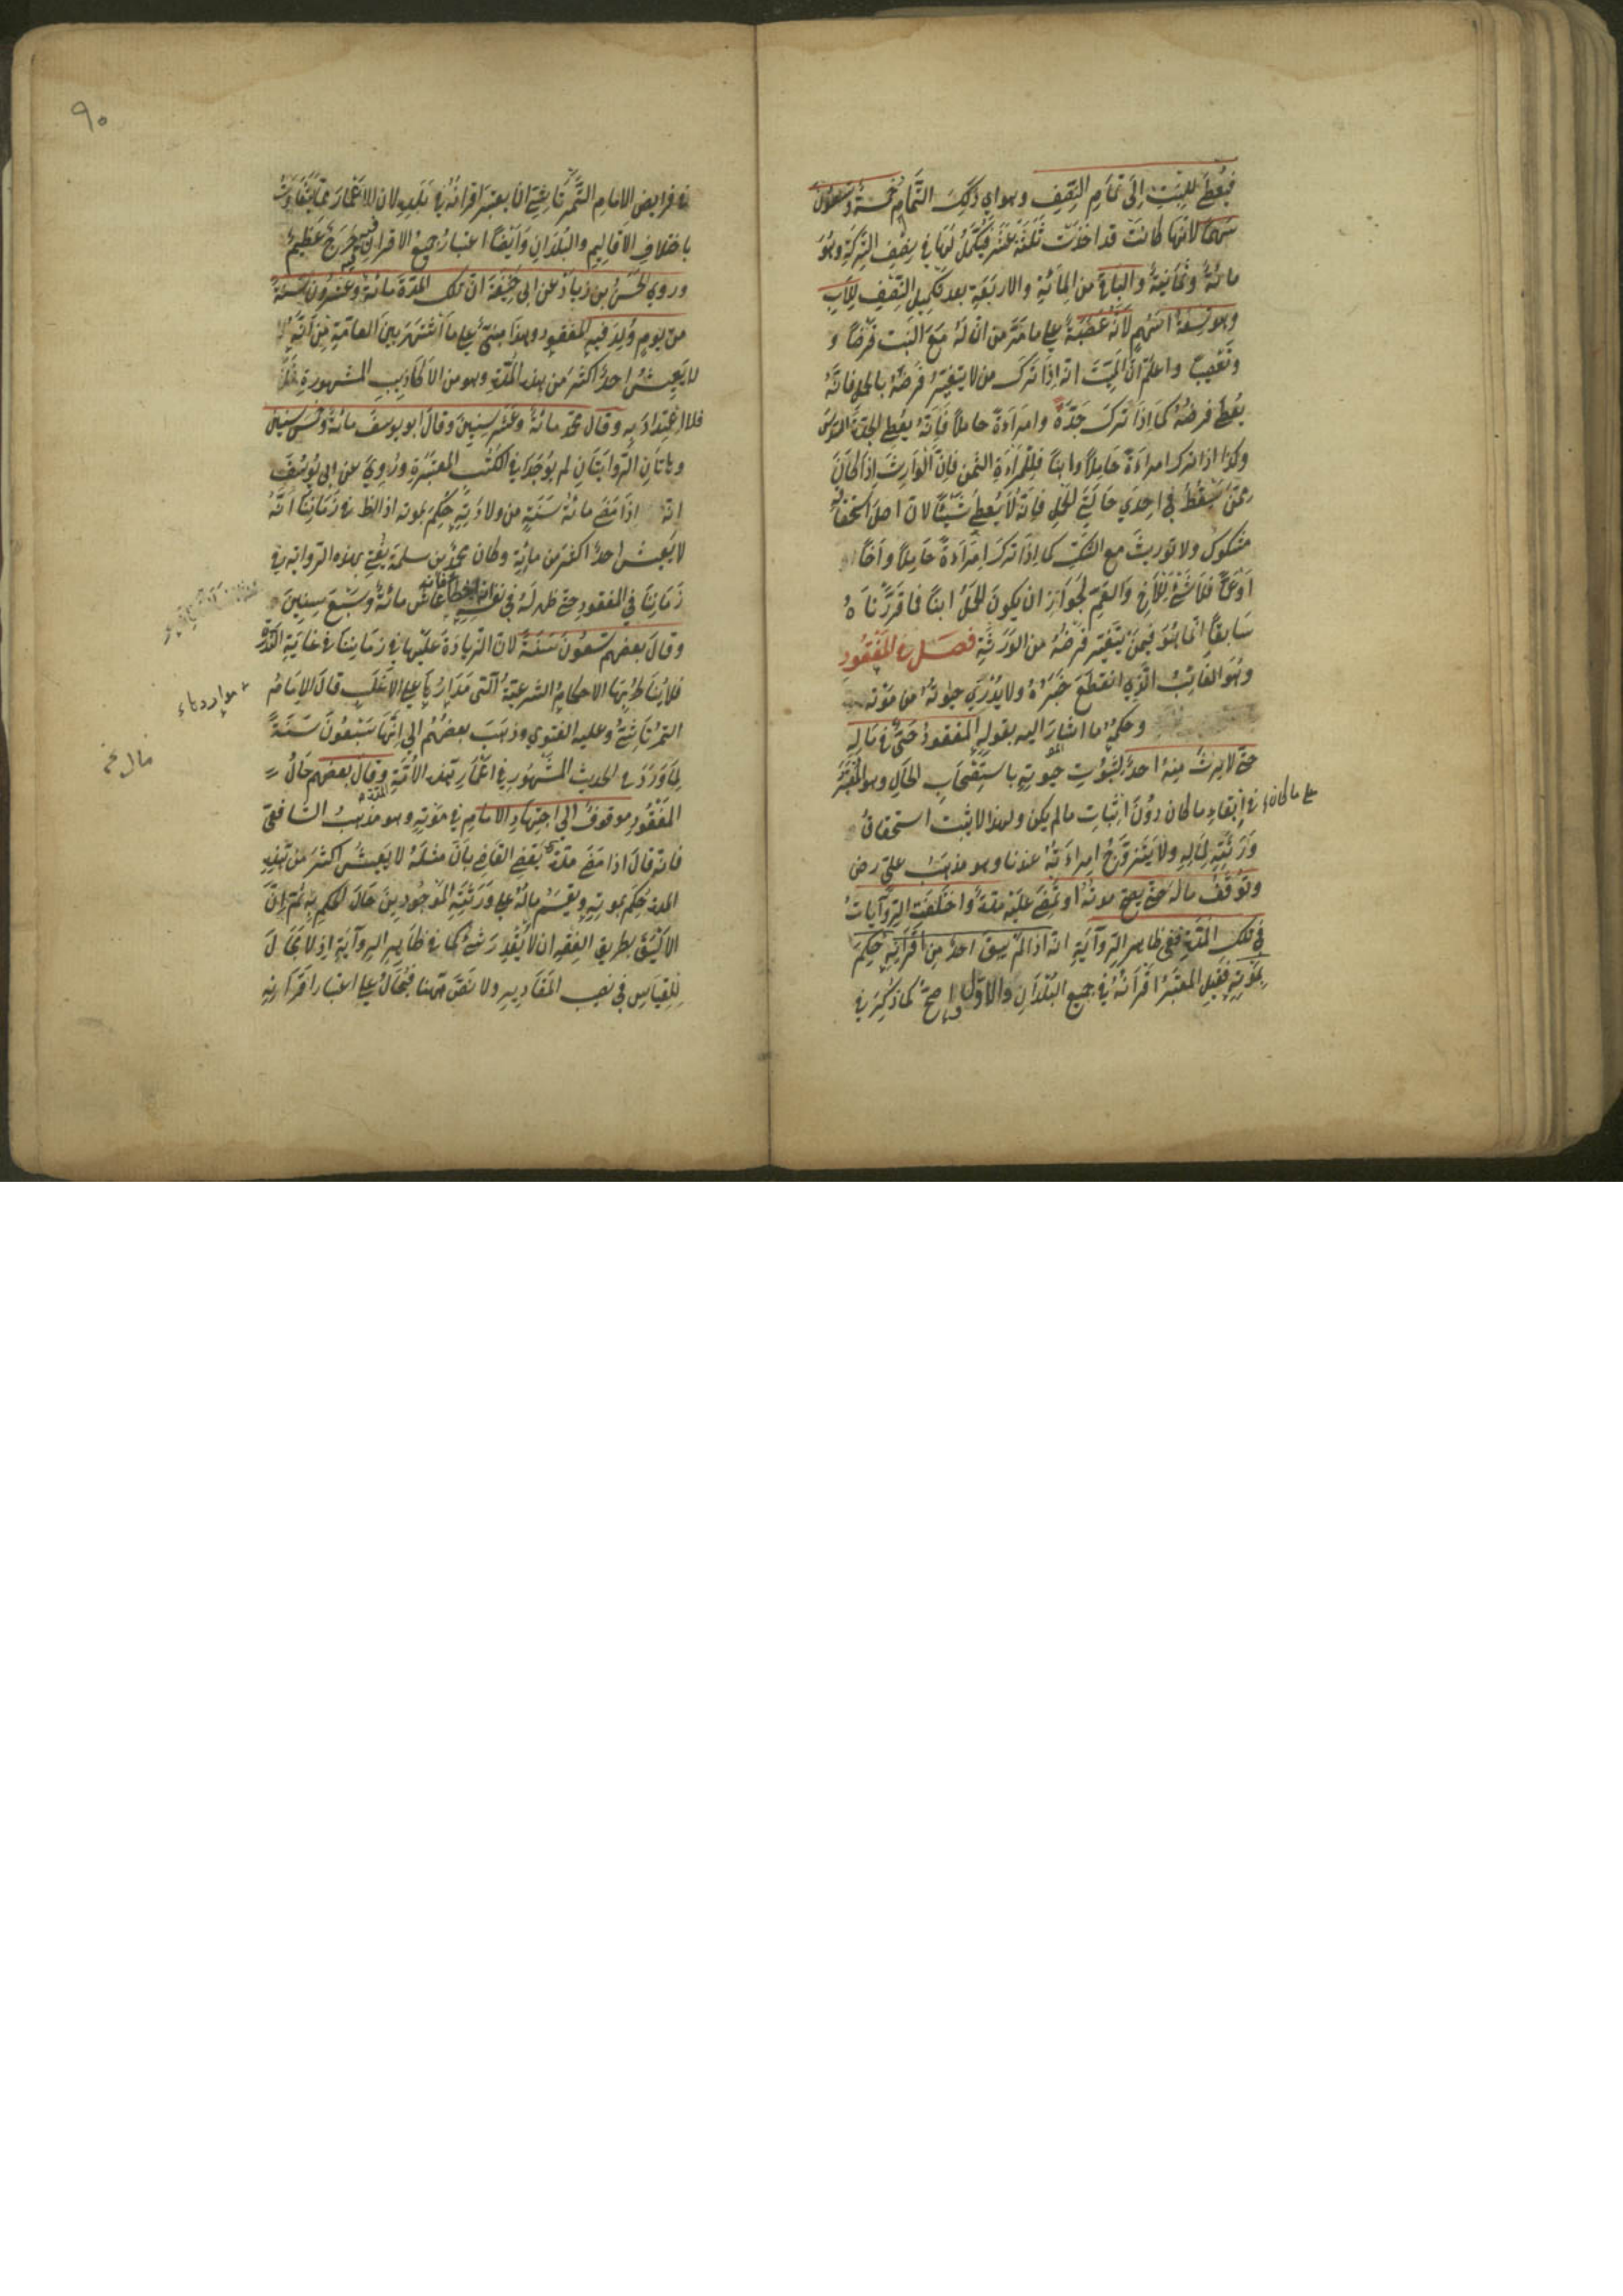 فيعطى للبنت الى تمام النصف وهو اي ذلك التمام خمسة وتسعون
سهما لانها كانت قد اخذت ثلثة عشر فيكمل لها في نصف التركة وهو
مائة وثمانية والباقي من المائة والاربعة بعد تكميل النصف للاب
وهو تسعة اسهم لانه عصبة على ما مر من ان له مع البنت فرضا و
وتعصيبا واعلم ان الميت انه اذا ترك من لا يتغير فرضه بالحمل فانه
يعطى فرضه كما اذا ترك جدة وامراءة حاملا فانه يعطى الجدة السدس
وكذا اذا ترك امراءة حاملا وابنا فللمراءة الثمن فان الوارث اذا كان
ممن يسقط في احدى حالتي الحمل فانه لا يعطى شيئا لان اصل استحقاقه
مشكوك ولا توريث مع الشك كما اذا ترك امراءة حاملا واخا
او عما فلا شئ للاخ والعم لجواز ان يكون الحمل ابنا فما قررناه
سابقا انما هو فيمن يتغير فرضه من الورثة فصل في المفقود
وهو الغائب الذي انقطع خبره ولا يدري حيوته من موته
وحكمه ما اشار اليه بقوله المفقود حي في ماله
حتى لا يرث منه احد لثبوت حيوته باستصحاب الحال وهو المعتبر
في ابقاء ما كان دون اثبات ما لم يكن ولهذا لا يثبت استحقاق
على ما كان
ورثته لماله ولا يتزوج امراءته عندنا وهو مذهب علي رض
وتوقف ماله حتى يصح موته او تمضى عليه مدة واختلفت الروايات
في تلك المدة ففي ظاهر الرواية انه اذا لم يبق احد من اقرانه حكم
بموته فقيل المعتبر اقرانه في جميع البلدان والاول اصح كما ذكر في
٩٠
في فرايض الامام التمرتاشي ان يعتبر اقرانه في بلده لان الاعمار مما يتفاوت
باختلاف الاقاليم والبلدان وايضا اعتبار جميع الاقران فيه حرج عظيم
وروى الحسن بن زياد عن ابي حنيفة ان تلك المدة مائة وعشرون سنة
من يوم ولد فيه المفقود وهذا مبني على ما اشتهر بين العامة من انه لا
لا يعيش احد اكثر من هذه المدة وهو من الاكاذيب المشهورة
فلا اعتداد به وقال محمد مائة وعشر سنين وقال ابو يوسف مائة وخمس سنين
وهاتان الروايتان لم يوجدا في الكتب المعتبرة وروي عن ابي يوسف
انه اذا مضى مائة سنة من ولادته حكم بموته اذ الظ في زماننا انه
لا يعيش احد اكثر من مائة وكان محمد بن سلمة يفتي بهذه الرواية في
زماننا في المفقود حتى ظهر له في نفسه الخطأ فانه عاش مائة وسبع سنين
وقال بعضهم تسعون سنة لان الزيادة عليها في زماننا في غاية الندرة
فلا يناط بها الاحكام الشرعية التي مدارها على الاغلب قال الامام
التمرتاشي وعليه الفتوى وذهب بعضهم الى انها سبعون سنة
لما ورد في الحديث المشهور في اعمار هذه الامة وقال بعضهم حال
مال
المفقود موقوف الى اجتهاد الامام في موته وهو مذهب الشافعي
فانه قال اذا مضى مدة يقضي القاضي بان مثله لا يعيش اكثر من هذه
المدة حكم بموته ويقسم ماله على ورثته الموجودين حال الحكم به ثم ان
الاليق بطريق الفقه ان لا يقدر شئ كما في ظاهر الرواية اذ لا مجال
للقياس في نصب المقادير ولا نص ههنا فيحال على اعتبار اقرانه